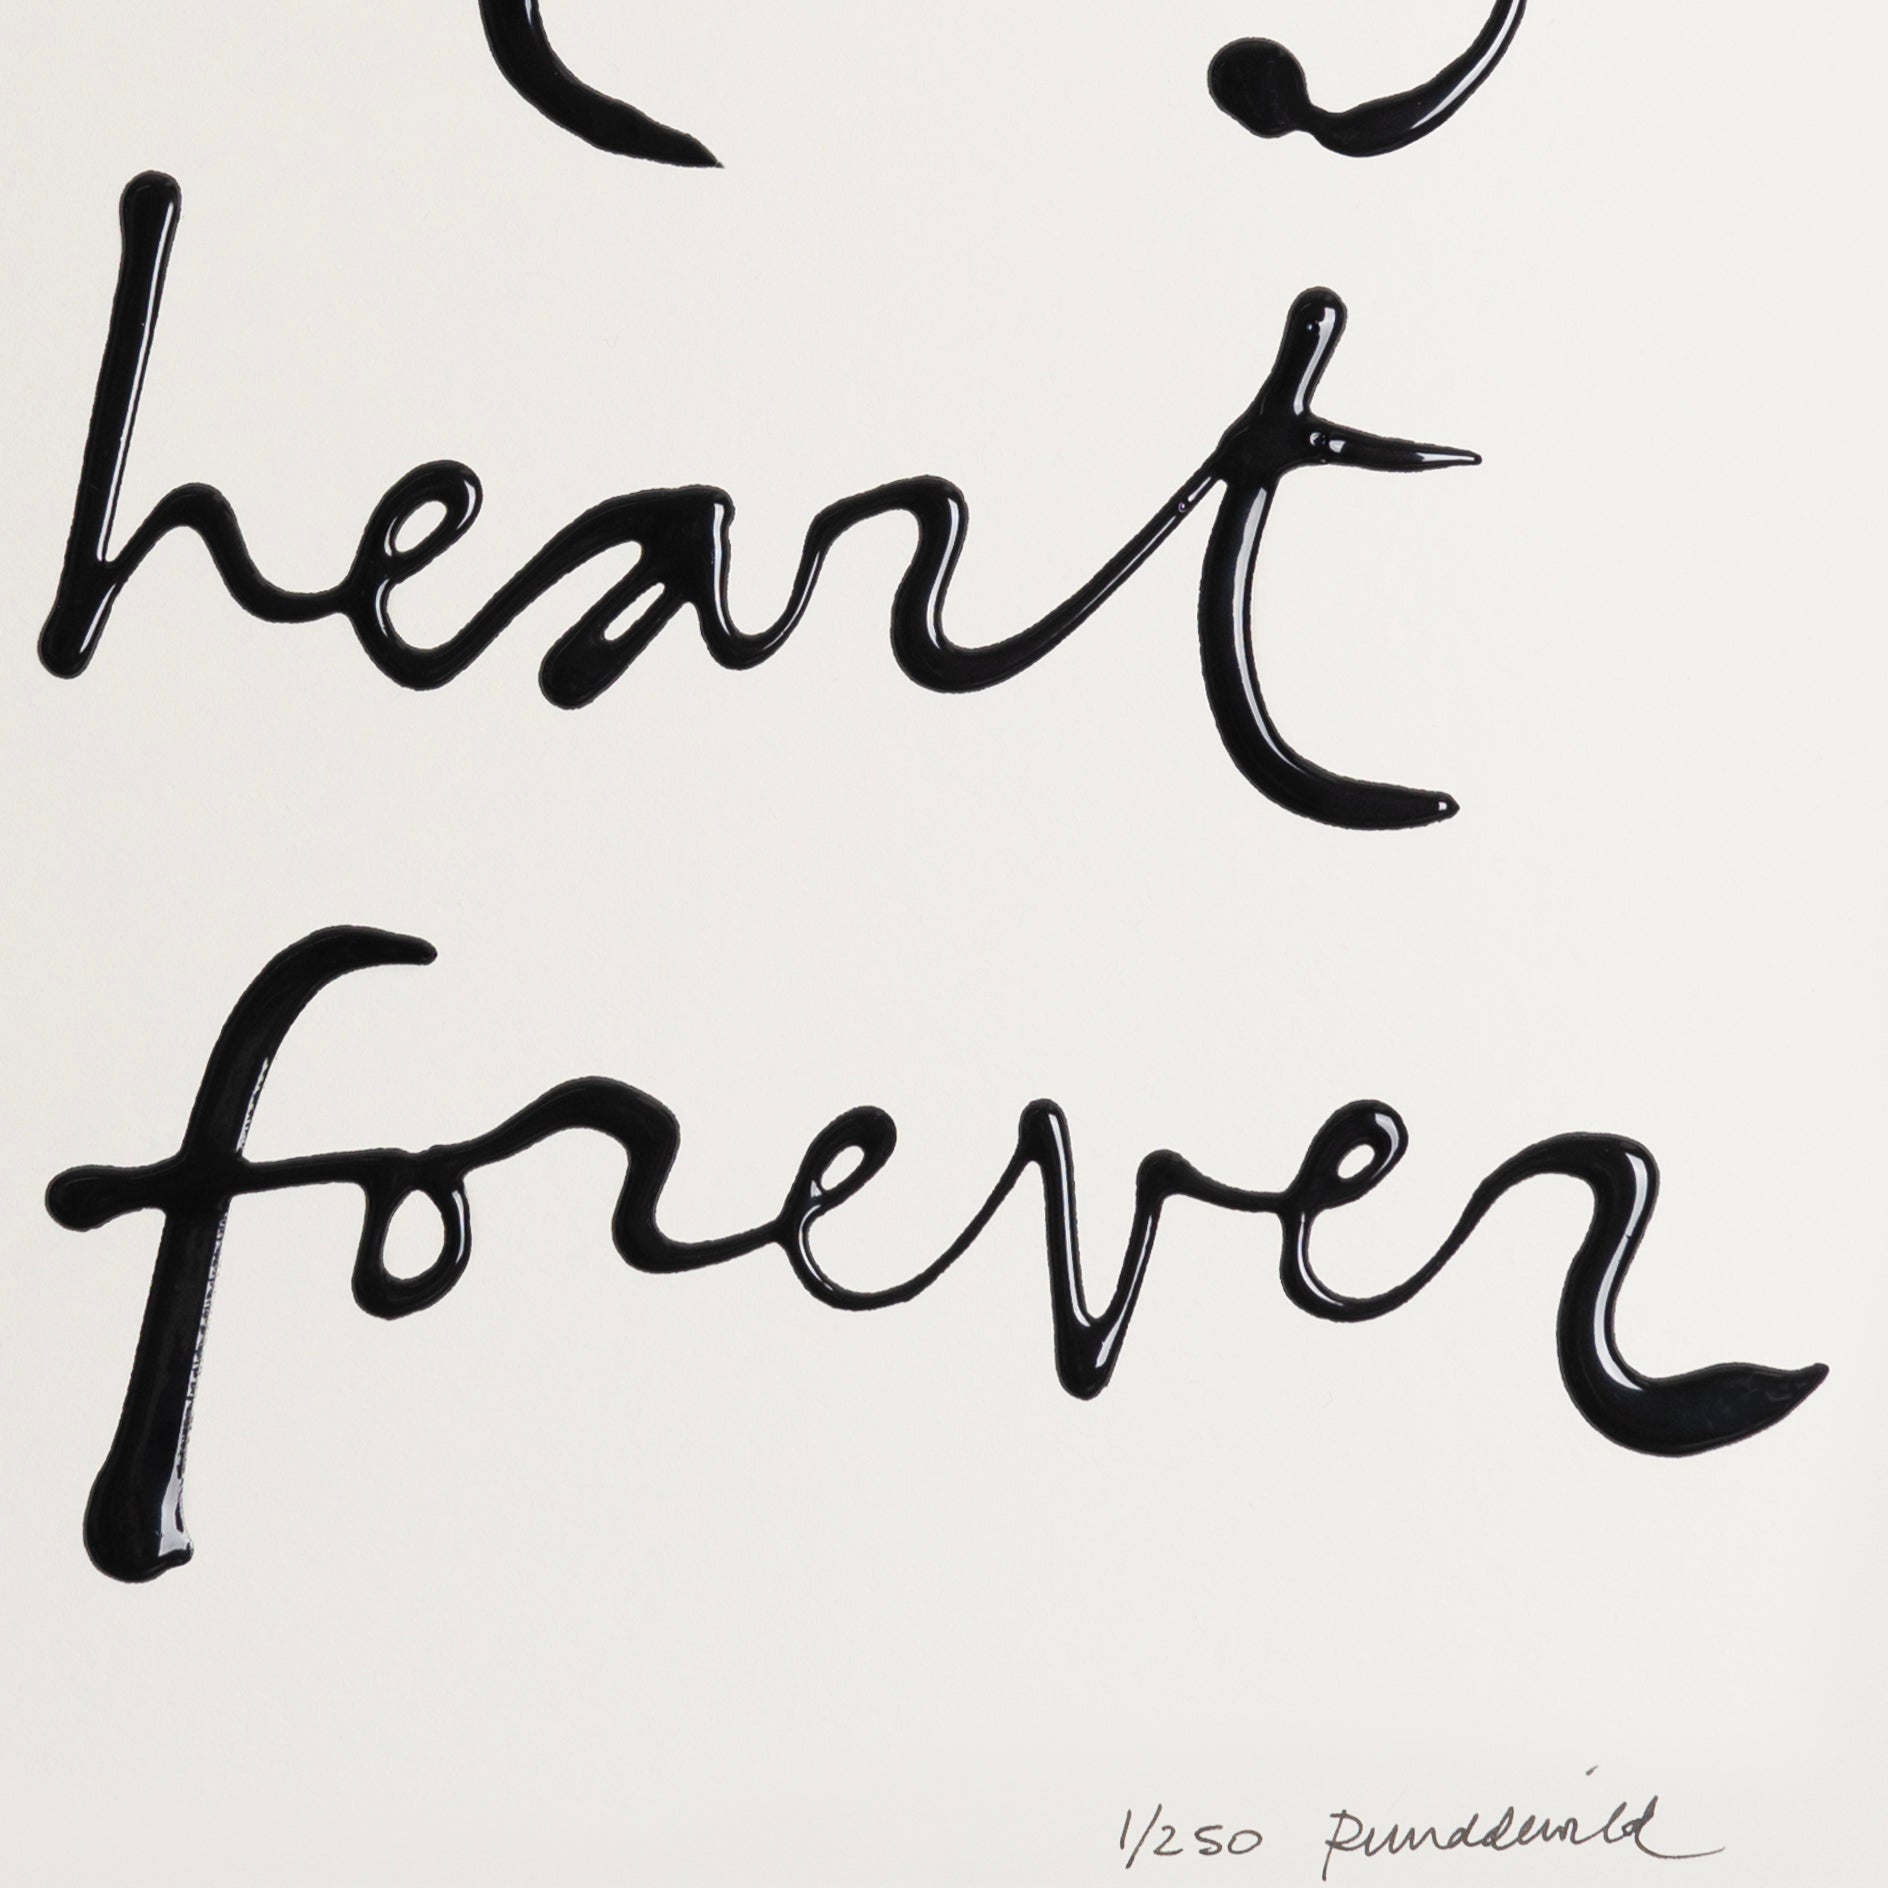 heart
forever
1/250